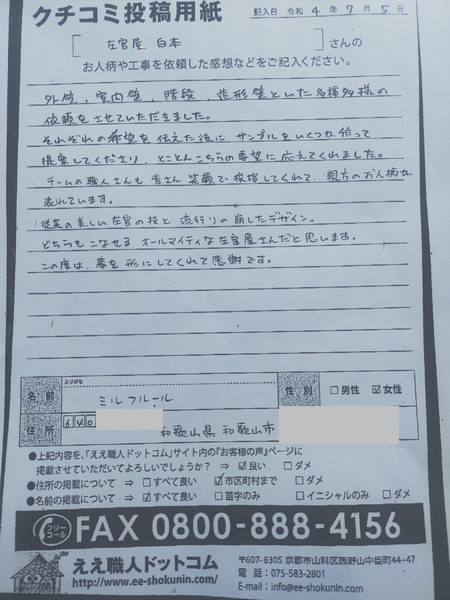 クチコミ投稿用紙
記入日 令和 4 年 7 月 5 日
[ 左官屋 白本 ] さんの
お人柄や工事を依頼した感想などをご記入ください。
外壁、室内壁、階段、造形壁といった多種多様の
依頼をさせていただきました。
それぞれの希望を伝えた後に サンプルをいくつか作って
提案してくださり、とことんこちらの要望に応えてくれました。
チームの職人さんも皆さん笑顔で挨拶してくれて、親方のお人柄が
表れています。
従来の美しい左官の技と 流行りの崩したデザイン。
どちらもこなせる オールマイティな左官屋さんだと思います。
この度は、夢を形にしてくれて感謝です。
ふりがな
名前 ミルフルール 性別 □男性 ☑女性
住所 640 和歌山県 和歌山市
●上記内容を、「ええ職人ドットコム」サイト内の『お客様の声』ページに
掲載させていただいてよろしいでしょうか? ⇒ ☑良い □ダメ
●住所の掲載について ⇒ □すべて良い ☑市区町村まで □ダメ
●名前の掲載について ⇒ ☑すべて良い □苗字のみ □イニシャルのみ □ダメ
フリーコール FAX 0800-888-4156
ええ職人ドットコム
http://www.ee-shokunin.com/
〒607-8305 京都市山科区西野山中臣町44-47
電話:075-583-2801
E-mail:info@ee-shokunin.com